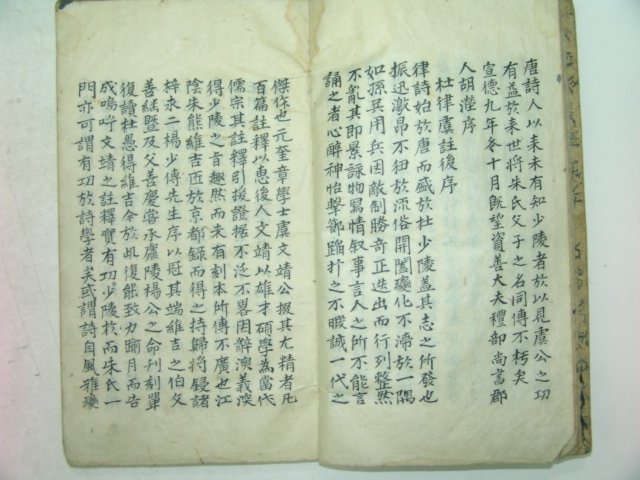 唐詩人以來未有知少陵者於以見虞公之功
有益於來世將朱氏父子之名同傳不朽矣
宣德九年冬十月既望資善大夫禮部尚書郡
人胡濙序
杜律虞註後序
律詩始於唐而盛於杜少陵蓋其志之所發也
振迅激昂不狃於流俗開闔變化不滯於一隅
如孫吳用兵因敵制勝奇正迭出而行列整然
不亂其即景詠物寫情叙事言人之所不能言
誦之者心醉神怡擊節蹈抃之不暇誠一代之
傑作也元奎章學士虞文靖公掇其尤精者凡
百篇註釋以惠後人文靖以雄才碩學為當代
儒宗其註釋引援證据不泛不畧因辭演義深
得少陵之肯趣然而未有刻本所傳不廣也江
陰朱熊維吉匹於京都録而得之持歸將鋟諸
梓求二楊少傅先生序以冠其端維吉之伯父
善継曁及父善慶嘗承廬陵楊公之命刊刻單
復讀杜愚得維吉今於此復能致力閱月而告
成嗚呼文靖之註釋實有功少陵於而朱氏一
門亦可謂有功於詩學者矣或謂詩自風雅變